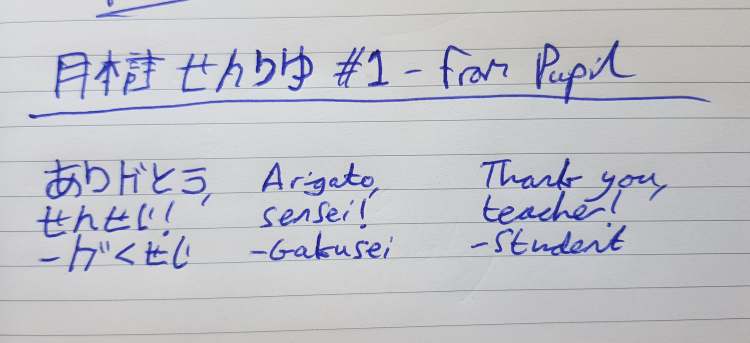 日本語 せんりゆ #1 - From Pupil
ありがとう, Arigato, Thank you,
せんせい! sensei! teacher!
- がくせい - Gakusei - Student